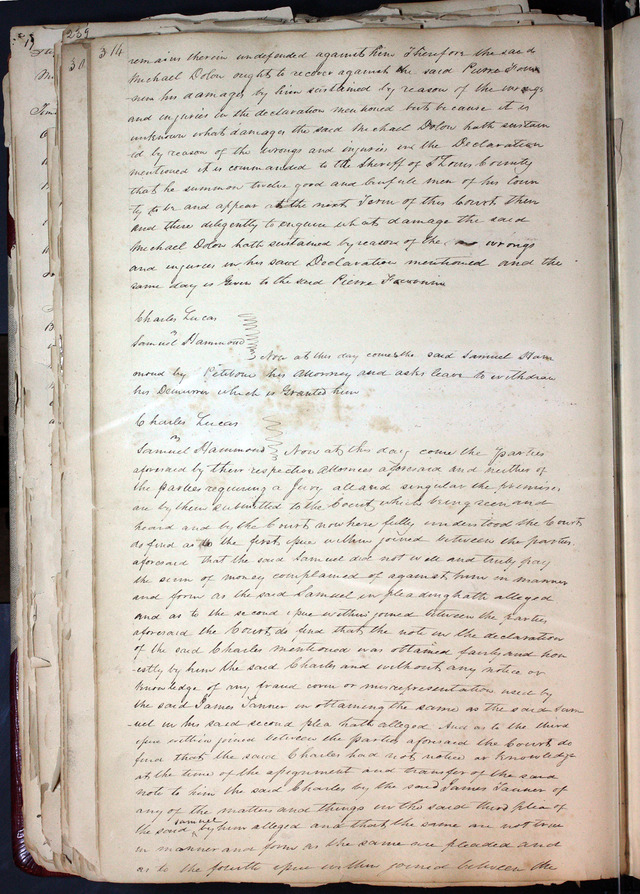 259
30
314
remains therein undefended against him Therefore the said
Michael Dolon ought to recover against the said Pierre
his damages by him sustained by reason of the wrongs
and injuries in the declaration mentioned but because it is
unknown what damages the said Michael Dolon hath sustain
ed by reason of the wrongs and injuries in the Declaration
mentioned it is commanded to the Sheriff of St Louis County
that he summon twelve good and lawfull men of his Coun
ty to be and appear at the next Term of this Court then
and there diligently to enquire what damage the said
Michael Dolon hath sustained by reason of the wrongs
and injuries in his said Declaration mentioned and the
same day is Given to the said Pierre
Charles Lucas
vs
Samuel Hammond
Now at this day comes the said Samuel Ham
mond by Petibone his Attorney and asks leave to withdraw
his Demurrer which is Granted him
Charles Lucas
vs
Samuel Hammond Now at this day come the parties
aforesaid by their respective attornies aforesaid and neither of
the parties requiring a Jury all and singular the premises
are by them submitted to the Court, which being seen and
heard and by the Court now here fully understood the Court
do find as to the first issue within joined between the parties
aforesaid that the said Samuel did not well and truly pay
the sum of money complained of against him in manner
and form as the said Samuel in pleading hath alleged
and as to the second issue within joined between the parties
aforesaid the Court do find that the note in the declaration
of the said Charles mentioned was obtained fairly and hon
estly by him the said Charles and without any notice or
knowledge of any fraud covin or misrepresentation used by
the said James Tanner in obtaining the same as the said Sam
uel in his said second plea hath alleged And as to the third
issue within joined between the parties aforesaid the Court do
find that the said Charles had not notice or knowledge
at the time of the assignment and transfer of the said
note to him the said Charles by the said James Tanner of
any of the matters and things in the said third plea of
the said Samuel by him alleged and that the same are not true
in manner and form as the same are pleaded and
as to the fourth issue within joined between the